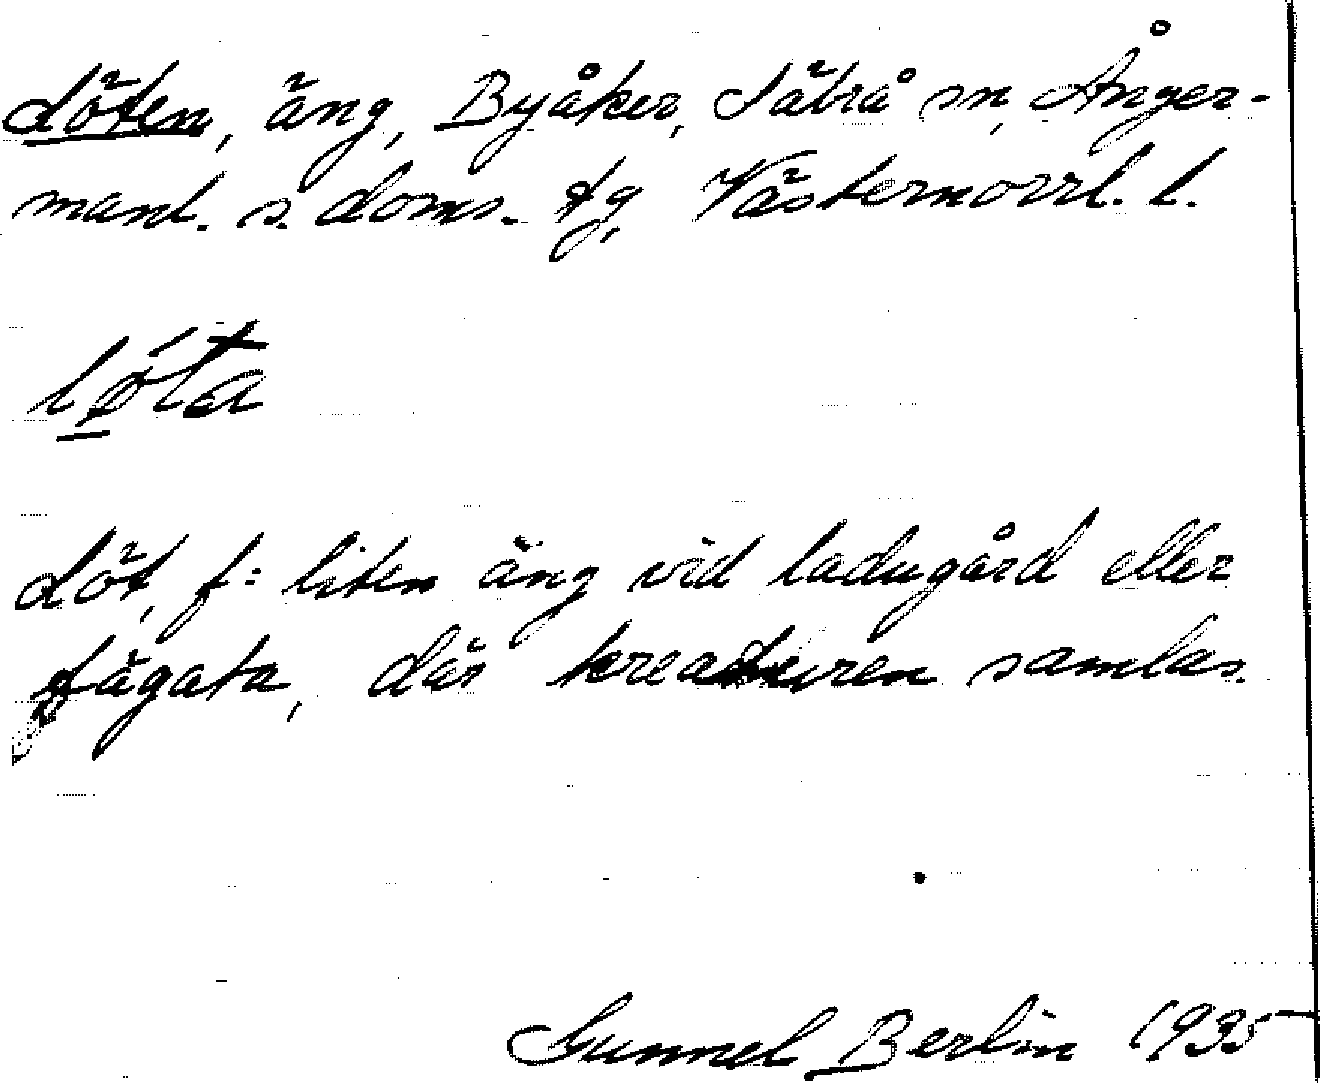 Löten, äng, Byåker, Sätrå sn, Ånger-
manl. s. doms. tg, Västernorrl. l.
lǿta
Löt, f = liten äng vid ladugård eller
fägata, där kreaturen samlas.
Gunnel Berlin 1935